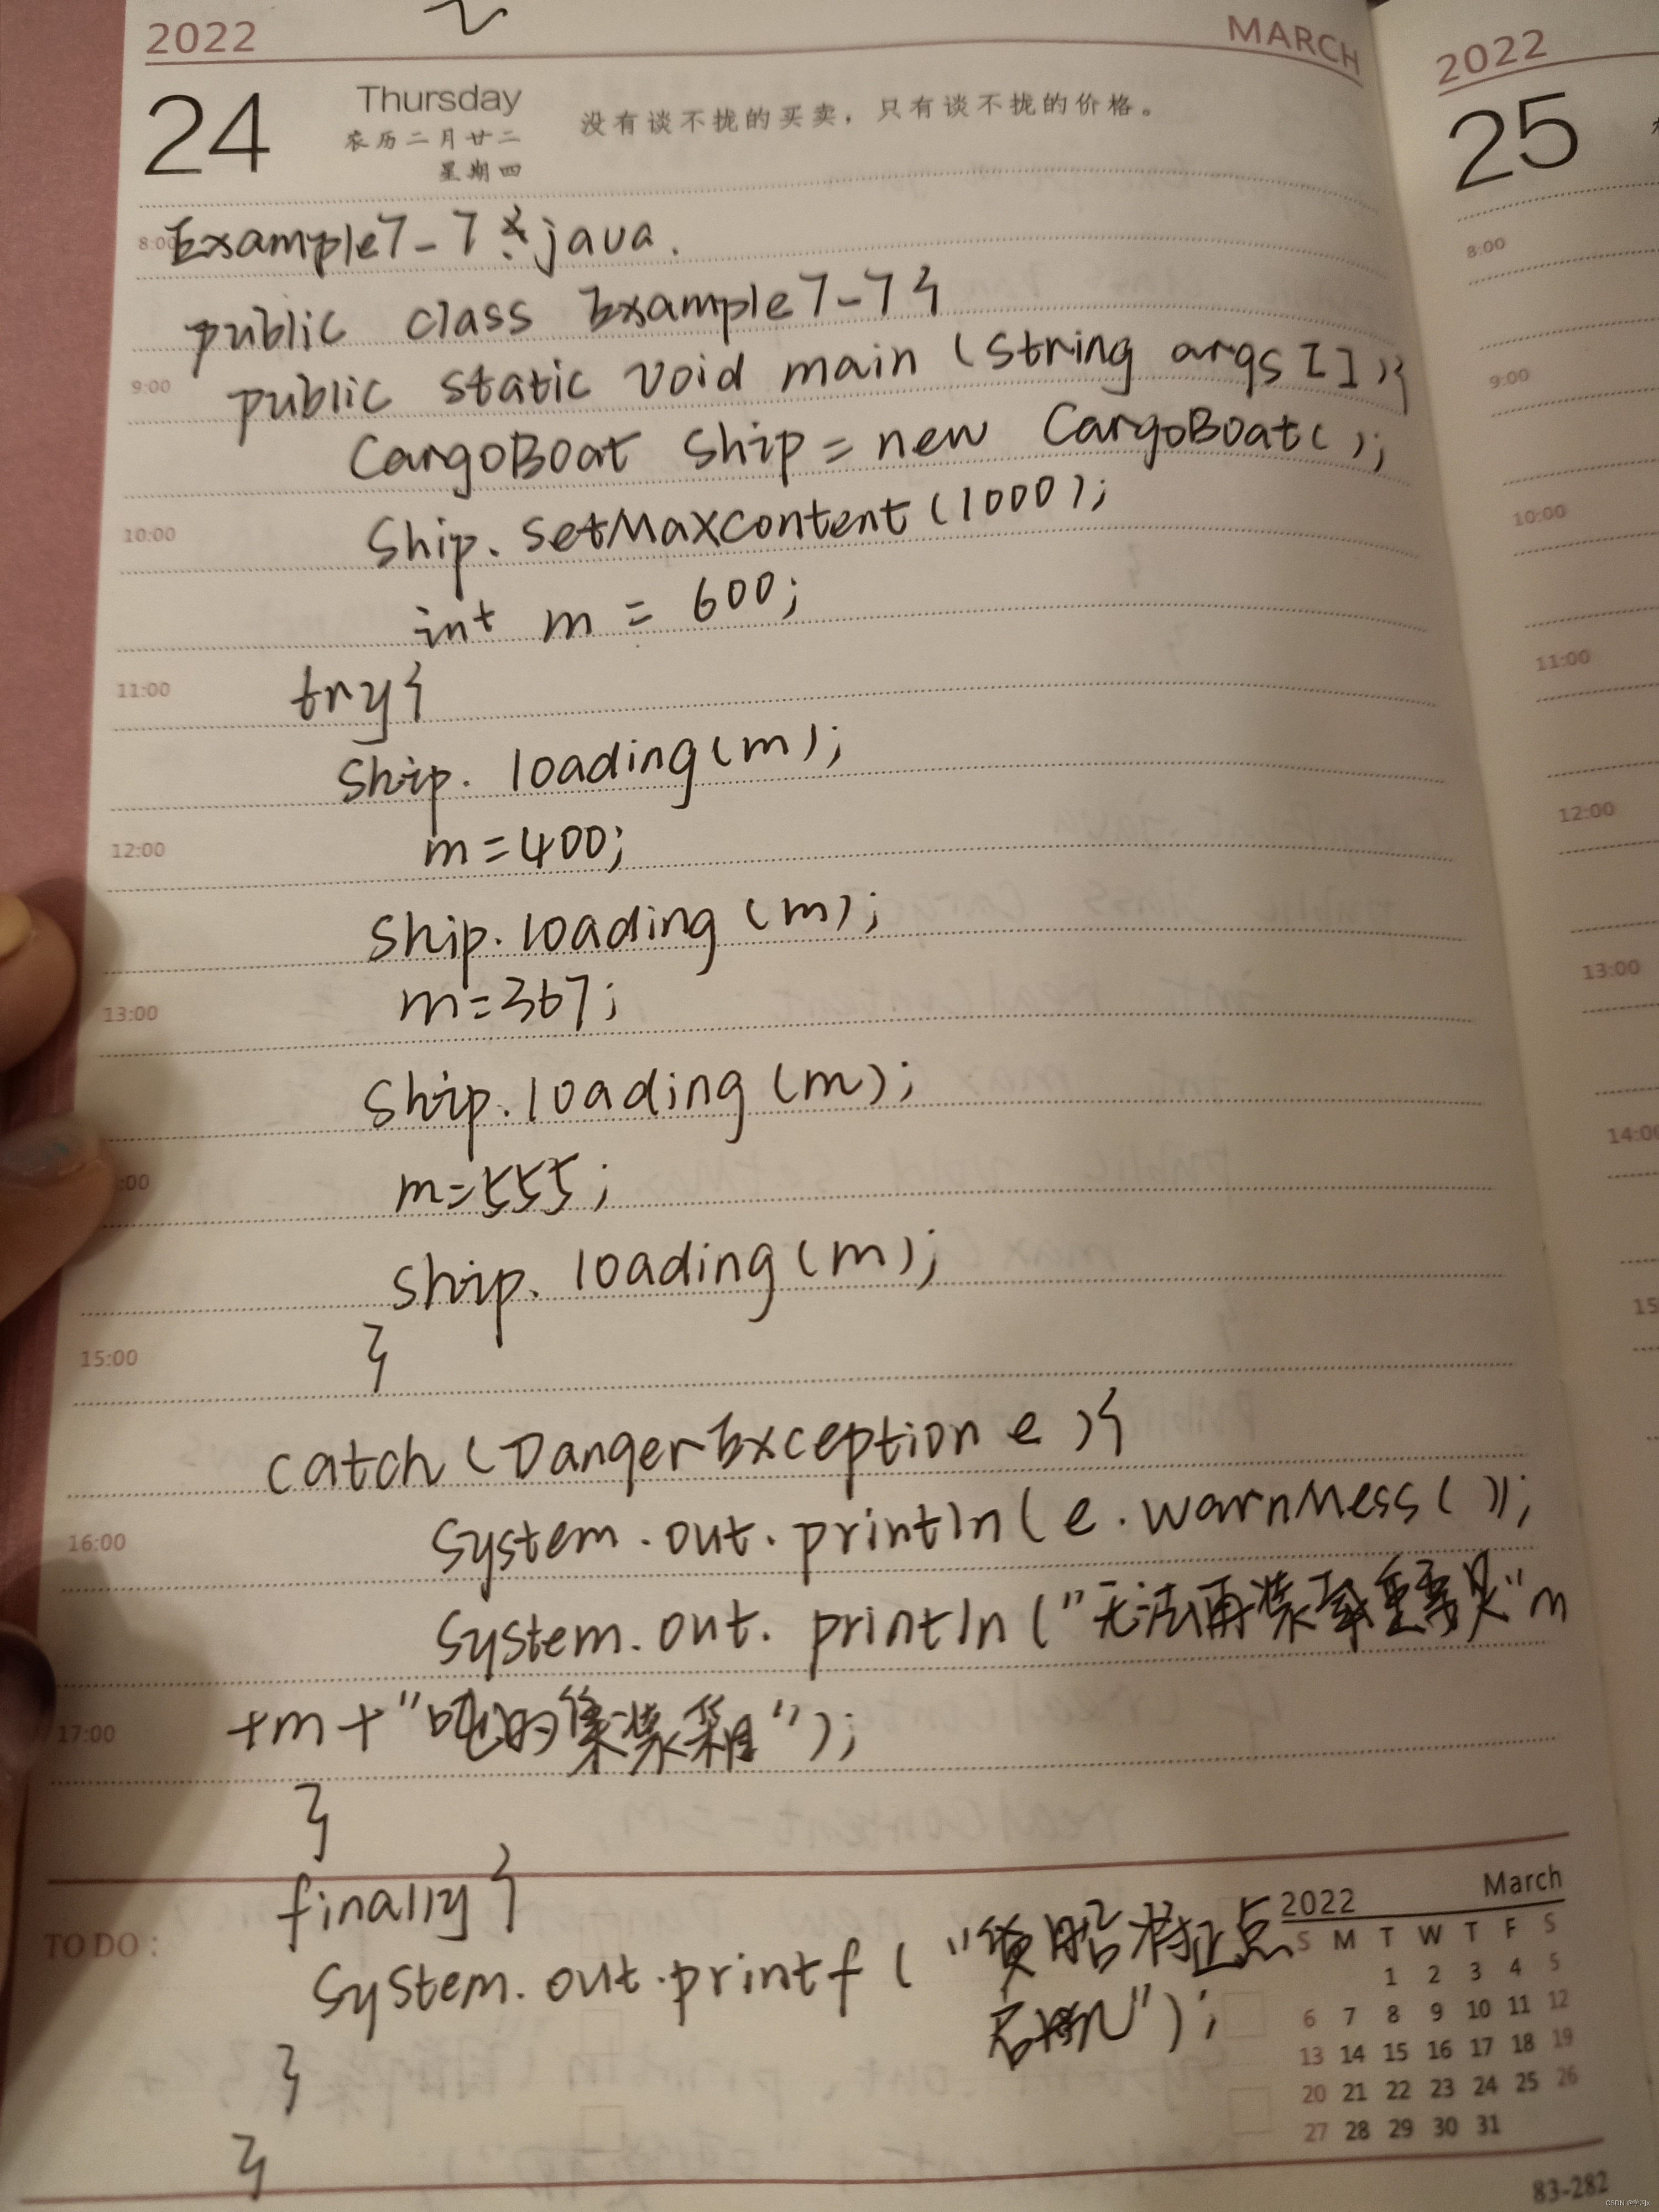 2022 MARCH
24 Thursday
农历二月廿二
星期四
没有谈不拢的买卖，只有谈不拢的价格。
Example7-7.java.
public class Example7-7{
public static void main (String args[]){
CargoBoat ship = new CargoBoat();
ship. setMaxContent (1000);
int m = 600;
try{
ship. loading(m);
m=400;
ship.loading (m);
m=367;
ship.loading (m);
m=555;
ship. loading (m);
}
catch (DangerException e ){
System.out.println( e.warnMess( ));
System.out. println ("无法再装载重量是"m
+m+"吨的集装箱");
}
finally{
System.out.printf ( "货船将正点
启航");
}
}
8:00
9:00
10:00
11:00
12:00
13:00
:00
15:00
16:00
17:00
TO DO :
2022 March
S M T W T F S
1 2 3 4 5
6 7 8 9 10 11 12
13 14 15 16 17 18 19
20 21 22 23 24 25 26
27 28 29 30 31
83-282
2022
25
8:00
9:00
10:00
11:00
12:00
13:00
14:00
15
CSDN @学习x